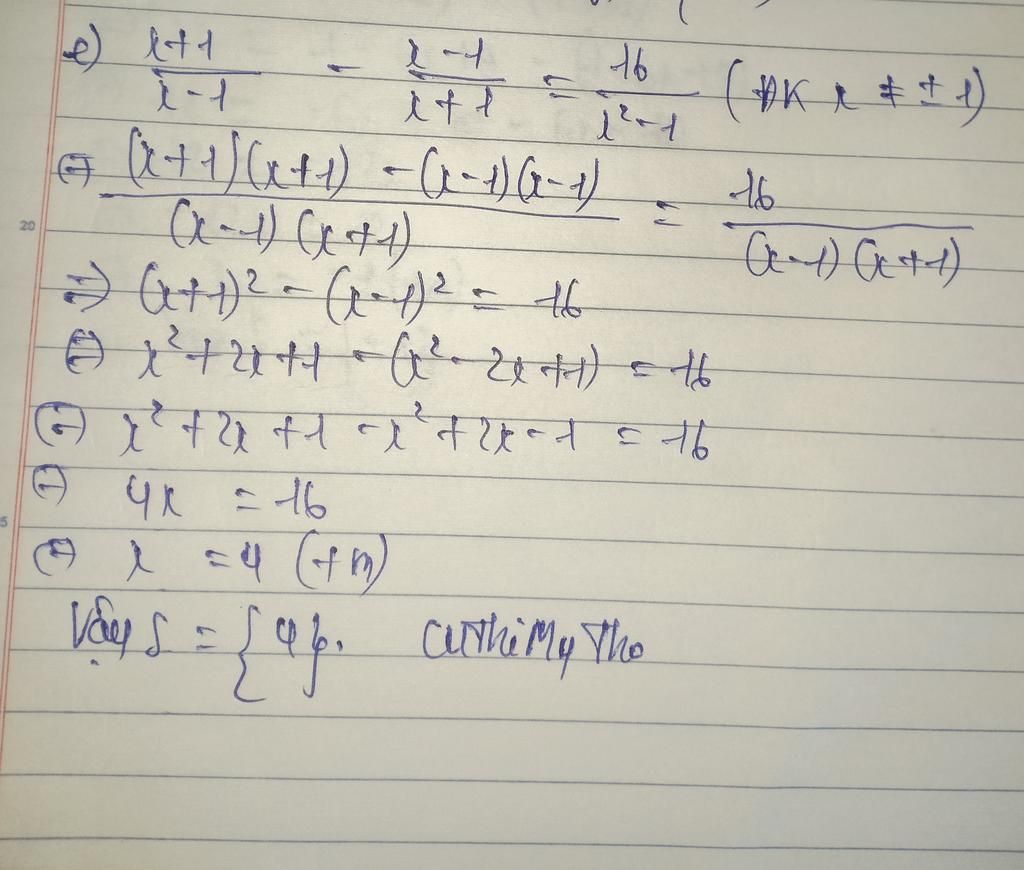 e) \frac{x+1}{x-1} - \frac{x-1}{x+1} = \frac{16}{x²-1} (ĐK x ≠ ±1)
⇔ \frac{(x+1)(x+1) - (x-1)(x-1)}{(x-1)(x+1)} = \frac{16}{(x-1)(x+1)}
20
⇒ (x+1)² - (x-1)² = 16
⇔ x² + 2x + 1 - (x² - 2x + 1) = 16
⇔ x² + 2x + 1 - x² + 2x - 1 = 16
⇔ 4x = 16
5
⇔ x = 4 (tm)
Vậy S = {4}. CuThiMyTho